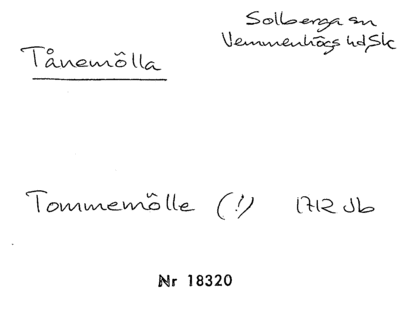 Solberga sn
Vemmenhögs hd, Sk
Tånemölla
Tommemölle (!) 1712 Jb
Nr 18320